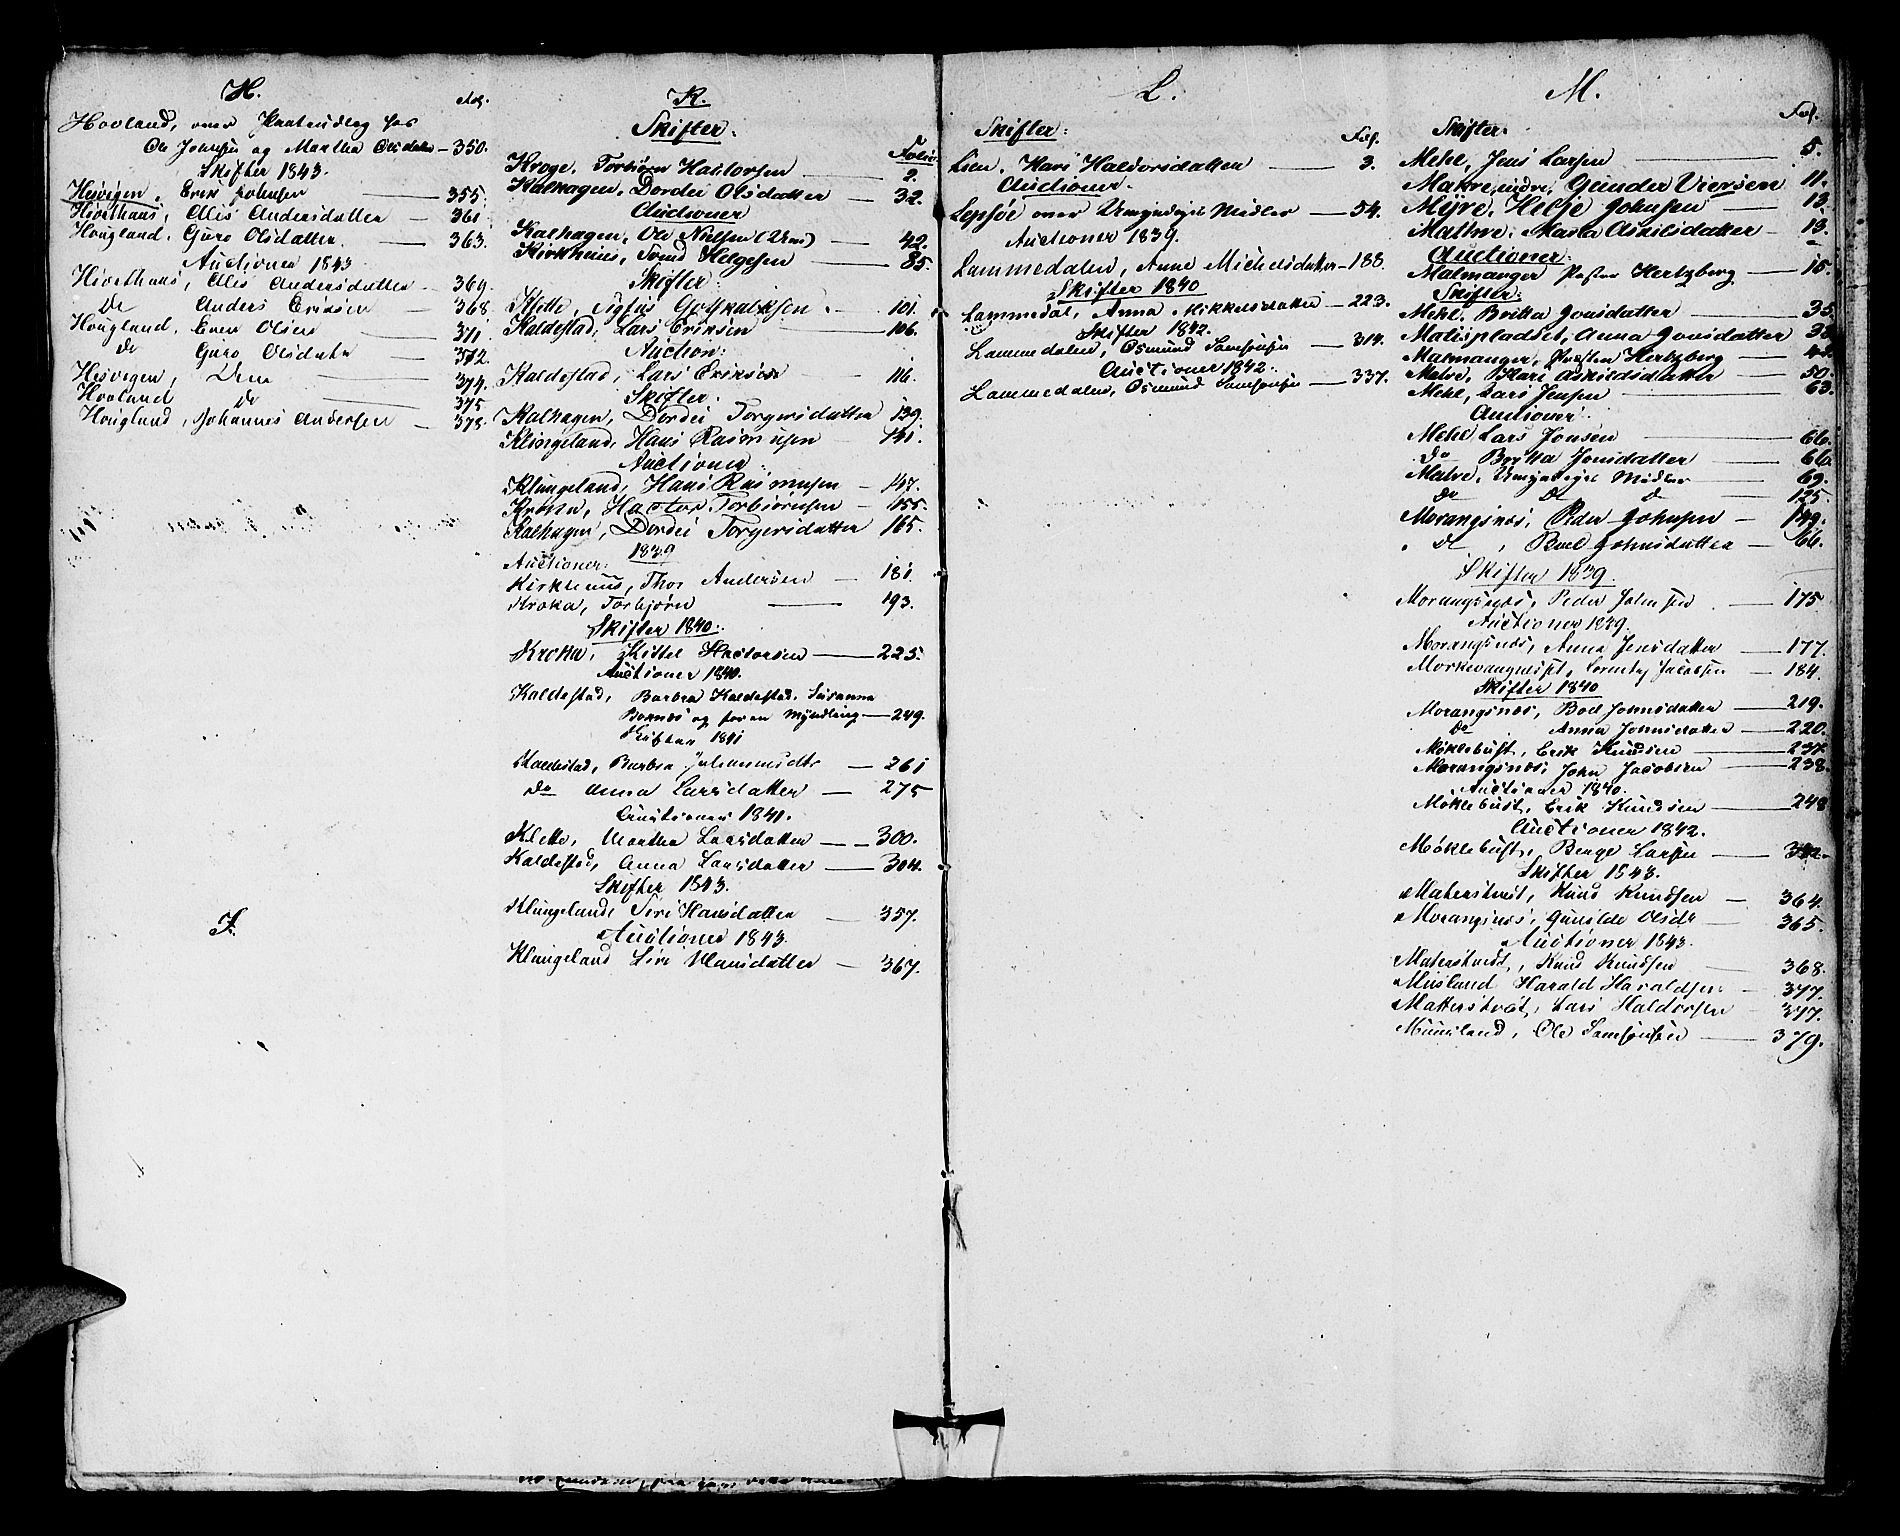 H.
Fol.
Hovland, over Pantudlæg hos
Ole Johnsen og Martha Olsdatter – 350.
Skifter 1843.
Hesvigen, Erik Johnsen — 355.
Hivethuus, Ales Andersdatter — 361
Hougland, Guro Olsdatter. — 363.
Auctioner 1843
Hivethuus, Ales Andersdatter – 369.
Do Anders Eriksen — 368.
Hougland, Ener Olsen — 371
Do Guro Olsdatr — 372.
Hesvigen, Dem — 374.
Hovland do — 375
Hougland, Johannes Andersen – 378.
I.
K.
Skifter.
Folio.
Kroge, Torbiörn Hactorsen — 2.
Kalhagen, Dordei Olsdatter — 32.
Auctioner
Kalhagen, Ole Nielsen (Um) — 42.
Kirkhuus, Svend Helgesen — 85.
Skifter.
Klette, Sygfus Gotskalksen. – 101.
Kaldestad, Lars Eriksen — 106.
Auction:
Kaldestad, Lars Eriksen – 116.
Skifter.
Kalhagen, Dordei Torgersdatter 139.
Klingeland, Hans Rasmusen 141.
Auctioner:
Klungeland, Hans Rasmusen – 147.
Kroka, Hactor Torbiörnsen – 155.
Kalhagen, Dordei Torgersdatter 165.
1839
Auctioner:
Kirkhuus, Thor Andersen — 181.
Kroka, Torbjørn — 193.
Skifter 1840.
Kroka, Kittel Hactorsen — 225.
Auctioner 1840.
Kaldestad, Barbra Kaldestad, Susanna
Bornæs og foren Myndling — 249.
Skifter 1841
Kaldestad, Barbra Johannesdtr — 261
do Anna Larsdatter — 275
Auctioner 1841.
Klette, Martha Larsdatter — 300.
Kaldestad, Anna Larsdatter — 304.
Skifter 1843.
Klungeland, Siri Hansdatter — 357.
Auctioner 1843.
Klungeland Siri Hansdatter — 367.
L.
Skifter:
Fol.
Lien, Kari Haldorsdatter — 3.
Auctioner.
Lepsöe over Umyndiges Midler — 54.
Auctioner 1839.
Lammedalen, Anne Michelsdatter – 188.
Skifter 1840
Lammedal, Anna Mikkelsdatter – 223.
Skifter 1842.
Lammedalen, Osmund Samsonsen — 314.
Auctioner 1842.
Lammedalen, Osmund Samsonsen — 337.
M.
Fol.
Skifter.
Mehl, Jens Larsen — 5.
Mahre indre, Gunder Viersen 11.
Myre, Helje Johnsen — 13.
Mathre, Marta Askilsdatter – 13.
Auctioner:
Malmanger Pastor Hertzberg — 15.
Skifter:
Mehl, Britta Jonsdatter — 35.
Matispladset, Anna Jonsdatter 38
Malmanger, Præsten Hertzberg — 42.
Matre, Kari Askildsdatter — 50.
Mehl, Lars Jensen — 63.
Auctioner:
Mehl Lars Jonsen — 66.
do Britta Jonsdatter — 66.
Matre, Umyndiges Midler — 69.
do do do — 125
Morangsnæs, Peder Johnsen – 149.
do, Boel Johnsdatter – 66.
Skifter 1839.
Morangsnæs, Peder Johnsen — 175.
Auctioner 1839.
Morangsnæs, Anna Jensdatter — 177.
Morkevangnist, Lorentz Jacobsen — 184.
Skifter 1840
Morangsnæs, Boel Johnsdatter — 219.
Do Anna Johnsdatter — 220.
Møklebust, Erik Knudsen — 237.
Morangsnæs, John Jacobsen — 238.
Auctioner 1840.
Møklebust, Erik Knudsen — 248
Auctioner 1842.
Møklebust, Berge Larsen — 342.
Skifter 1843.
Materstvedt, Knud Knudsen – 364.
Morangsnæs, Gunilde Olsdr — 365.
Auctioner 1843.
Materstvedt, Knud Knudsen — 368.
Musland Harald Haraldsen – 377.
Matterstvet, Lars Haldorsen – 377.
Muusland, Ole Samsonsen — 379.